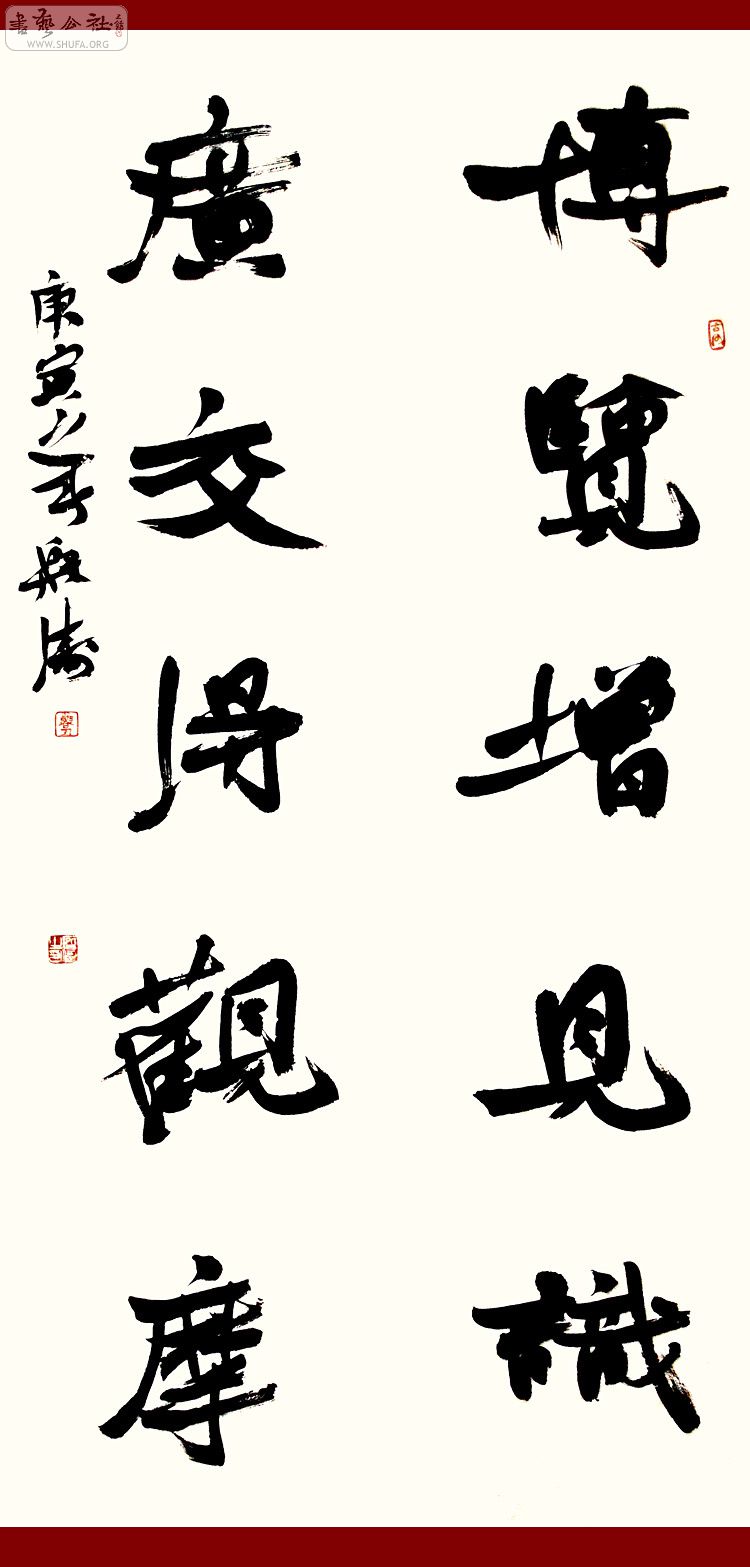 博覽增見識
廣交得觀摩
庚寅之春
書藝公社
WWW.SHUFA.ORG